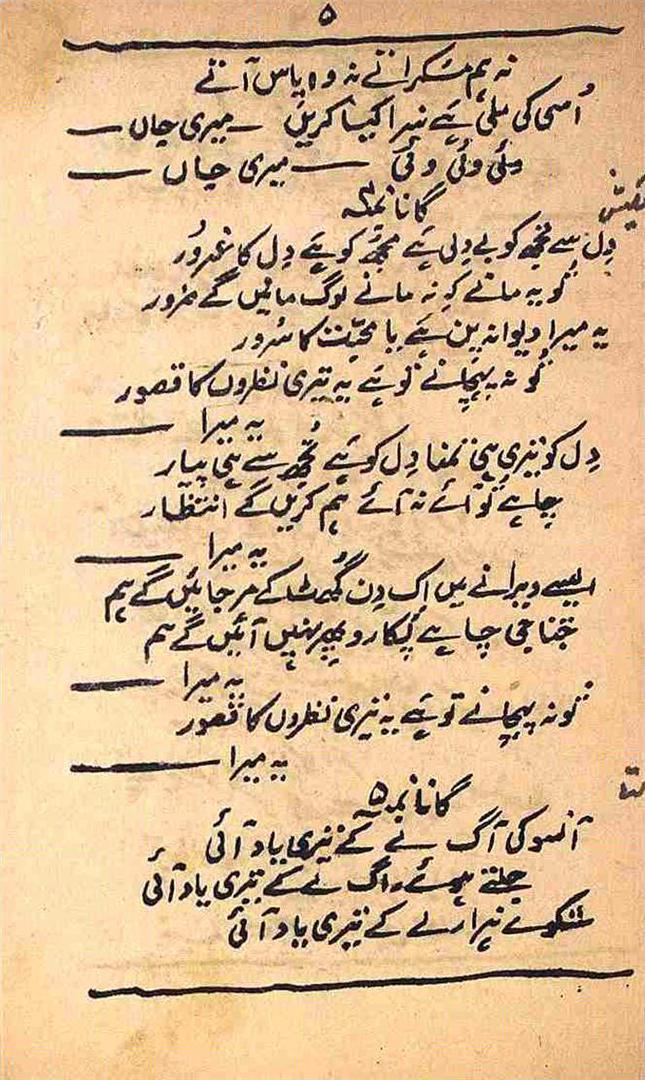 ۵
نہ ہم مسکراتے نہ وہ پاس آتے
اُسی کی ملی ہے سزا کیا کریں — میری جاں —
وئی وئی وئی — میری جاں —
مکیش
گانا نمبر ۴
دِل سے تجھ کو بے دِلی ہے مجھ کو ہے دِل کا غرور
تُو یہ مانے کہ نہ مانے لوگ مانیں گے ضرور
یہ میرا دیوانہ پن ہے یا محبّت کا سُرور
تُو نہ پہچانے تو ہے یہ تیری نظروں کا قصور
یہ میرا —
دِل کو تیری ہی تمنا دِل کو ہے تُجھ سے ہی پیار
چاہے تُو آئے نہ آئے ہم کریں گے انتظار
یہ میرا —
ایسے ویرانے میں اِک دِن گُھٹ کے مر جائیں گے ہم
جتنا جی چاہے پُکارو پھر نہیں آئیں گے ہم
یہ میرا —
تُو نہ پہچانے تو ہے یہ تیری نظروں کا قصور
یہ میرا —
لتا
گانا نمبر ۵
آنسو کی آگ لے کے تیری یاد آئی
جلتے ہوئے راگ لے کے تیری یاد آئی
ہزار لے کے تیری یاد آئی